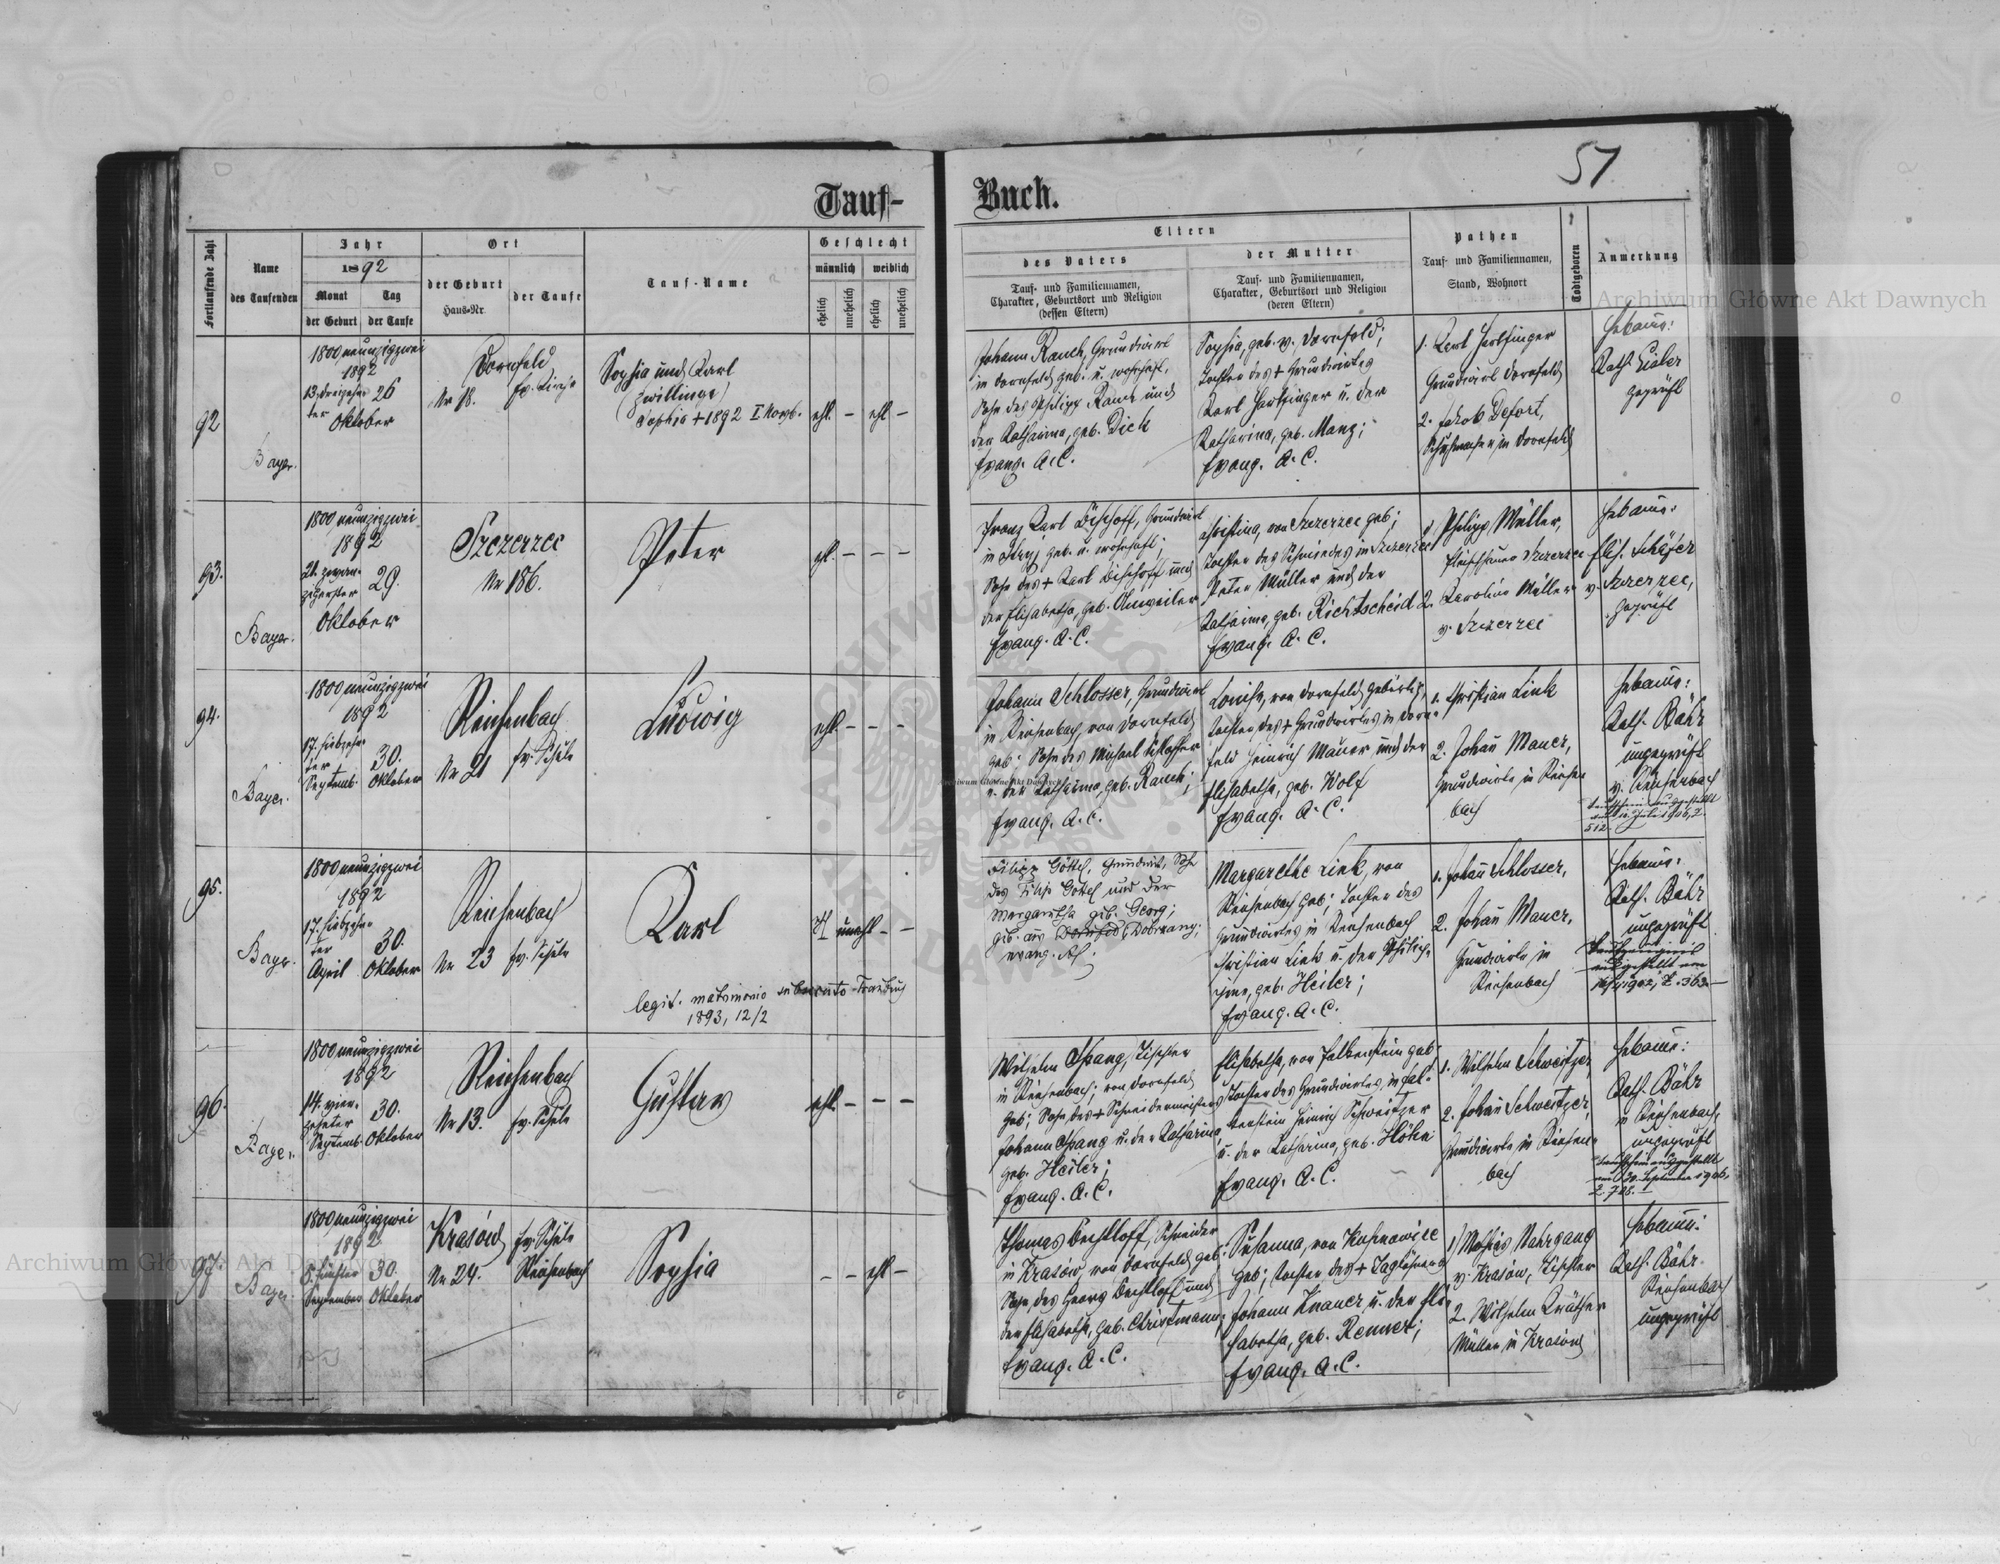 51
Tauf-
Buch.
Fortlaufende Zahl
Name
des Taufenden
Jahr
1892
Monat
Tag
der Geburt
der Taufe
Ort
der Geburt
Haus-Nr.
der Taufe
Tauf-Name
Geschlecht
männlich
weiblich
ehelich
unehelich
ehelich
unehelich
Eltern
des Vaters
Tauf- und Familiennamen,
Charakter, Geburtsort und Religion
(dessen Eltern)
der Mutter
Tauf- und Familiennamen,
Charakter, Geburtsort und Religion
(deren Eltern)
Pathen
Tauf- und Familiennamen,
Stand, Wohnort
Todtgeboren
Anmerkung
92
Bayer.
1800 neunzigzwei
1892
13. dreizehn-
ter
26
Oktober
Dornfeld
Nr 18.
ev. Kirche
Sophia und Karl
(Zwillinge)
Sophia + 1892
ehl. – ehl –
Johann Rauch, Grundwirt
in Dornfeld geb. u. wohnhaft,
Sohn des Philipp Rauch und
der Katharina, geb. Dick
Evang. A. C.
Sophia, geb. v. Dornfeld;
Tochter des + Grundwirtes
Karl Hartfinger u. der
Katharina, geb. Manz;
Evang. A. C.
1. Karl Hartfinger
Grundwirt Dornfeld
2. Jakob Defort,
Schuhmacher in Dornfeld
Hebamme:
Kath.
geprüft
93.
Bayer.
1800 neunzigzwei
1892
21. zwan-
zigerster
29.
Oktober
Szczerzec
Nr 186.
Peter
ehl. – – –
Franz Karl Bischoff, Grundwirt
geb. u. wohnhaft;
Sohn des + Karl Bischoff und
der Elisabetha, geb. Ohnweiler
Evang. A. C.
Christina, von Szczerzec geb;
Tochter des Schmiedes in Szczerzec
Peter Müller und der
Katharina, geb. Richtscheid
Evang. A. C.
1. Philipp Müller,
Fleischhauer Szczerzec
2. Karolina Müller
v. Szczerzec
Hebamme:
Elis. Schäfer
v. Szczerzec,
geprüft
94.
Bayer.
1800 neunzigzwei
1892
17. siebzehn-
ter
Septemb.
30.
Oktober
Reichenbach
Nr 21
ev. Schule
Ludwig
ehl. – – –
Johann Schlosser, Grundwirt
in Reichenbach, von Dornfeld
geb; Sohn des Michael Schlosser
u. der Katharina, geb. Rauch;
Evang. A. C.
Louise, von Dornfeld gebürtig,
Tochter des + Grundwirtes in Dorn-
feld Heinrich Mauer und der
Elisabetha, geb. Wolf
Evang. A. C.
1. Christian Link
2. Johan̄ Mauer,
Grundwirte in Reichen
bach
Hebamme:
Kath. Bähr
ungeprüft
v. Reichenbach
Taufschein ausgestellt
512.
95.
Bayer.
1800 neunzigzwei
1892
17. siebzehn-
ter
April
30.
Oktober
Reichenbach
Nr 23
ev. Schule
Karl
unehl – –
legit. matrimonio
1893, 12/2
Filipp Göttel, Grundwirt, Sohn
des Filip Götel und der
Margaretha geb. Georg;
geb. aus Dornfeld Dobrzany;
evang. AC.
Margarethe Link, von
Reichenbach geb; Tochter des
Grundwirtes in Reichenbach
Christian Link u. der Philip-
pine, geb. Heiler;
Evang. A. C.
1. Johan̄ Schlosser,
2. Johan̄ Mauer,
Grundwirte in
Reichenbach
Hebamme:
Kath. Bähr
ungeprüft
ausgestellt am
96.
Bayer.
1800 neunzigzwei
1892
14. vier-
zehnter
Septemb.
30.
Oktober
Reichenbach
Nr 13.
ev. Schule
Gustav
ehl. – – –
Wilhelm Spang, Tischler
in Reichenbach; von Dornfeld
geb; Sohn des + Schneidermeisters
Johann Spang u. der Katharina
geb. Heiler;
Evang. A. C.
Elisabetha, von Falkenstein geb-
Tochter des Grundwirtes, in Fal-
kenstein Heinrich Schweitzer
u. der Katharina, geb. Höhn
Evang. A. C.
1. Wilhelm Schweitzer
2. Johan̄ Schweitzer,
Grundwirte in Reichen-
bach
Hebamme:
Kath. Bähr
v. Reichenbach,
ungeprüft
Taufschein ausgestellt
am 20. September 1906,
97.
Bayer.
1800 neunzigzwei
1892
5. fünfter
September
30.
Oktober
Krasów
Nr 24.
ev. Schule
Reichenbach
Sophia
– – ehl –
Thomas Bechtloff, Schneider
in Krasów, von Dornfeld geb;
Sohn des Georg Bechtloff und
der Elisabetha, geb. Christmann;
Evang. A. C.
Susanna, von
geb; Tochter des + Taglöhners
Johann Knauer u. der Eli-
sabetha, geb. Renner;
Evang. A. C.
1) Mathias Nahrgang
v. Krasów, Tischler
2. Wilhelm
Müller in Krasów
Hebamme:
Kath. Bähr
Reichenbach
ungeprüft
Archiwum Główne Akt Dawnych
Archiwum Główne Akt Dawnych
Archiwum Główne Akt Dawnych